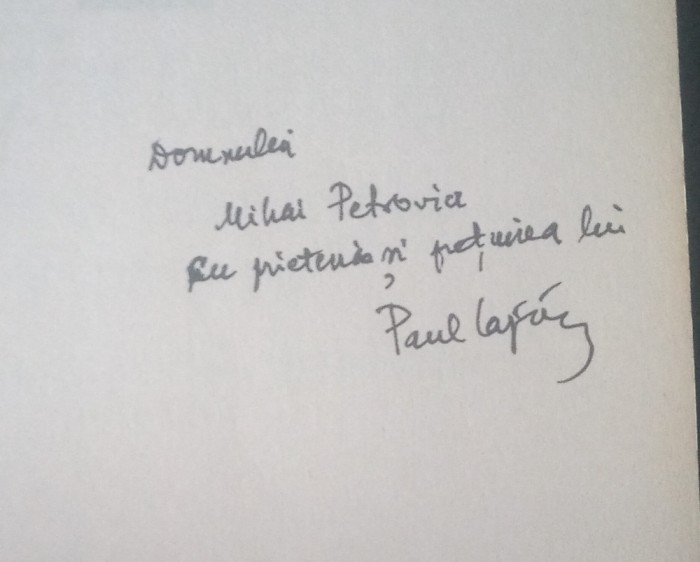 Domnului
Mihai Petrovici
Cu prietenia și prețuirea lui
Paul